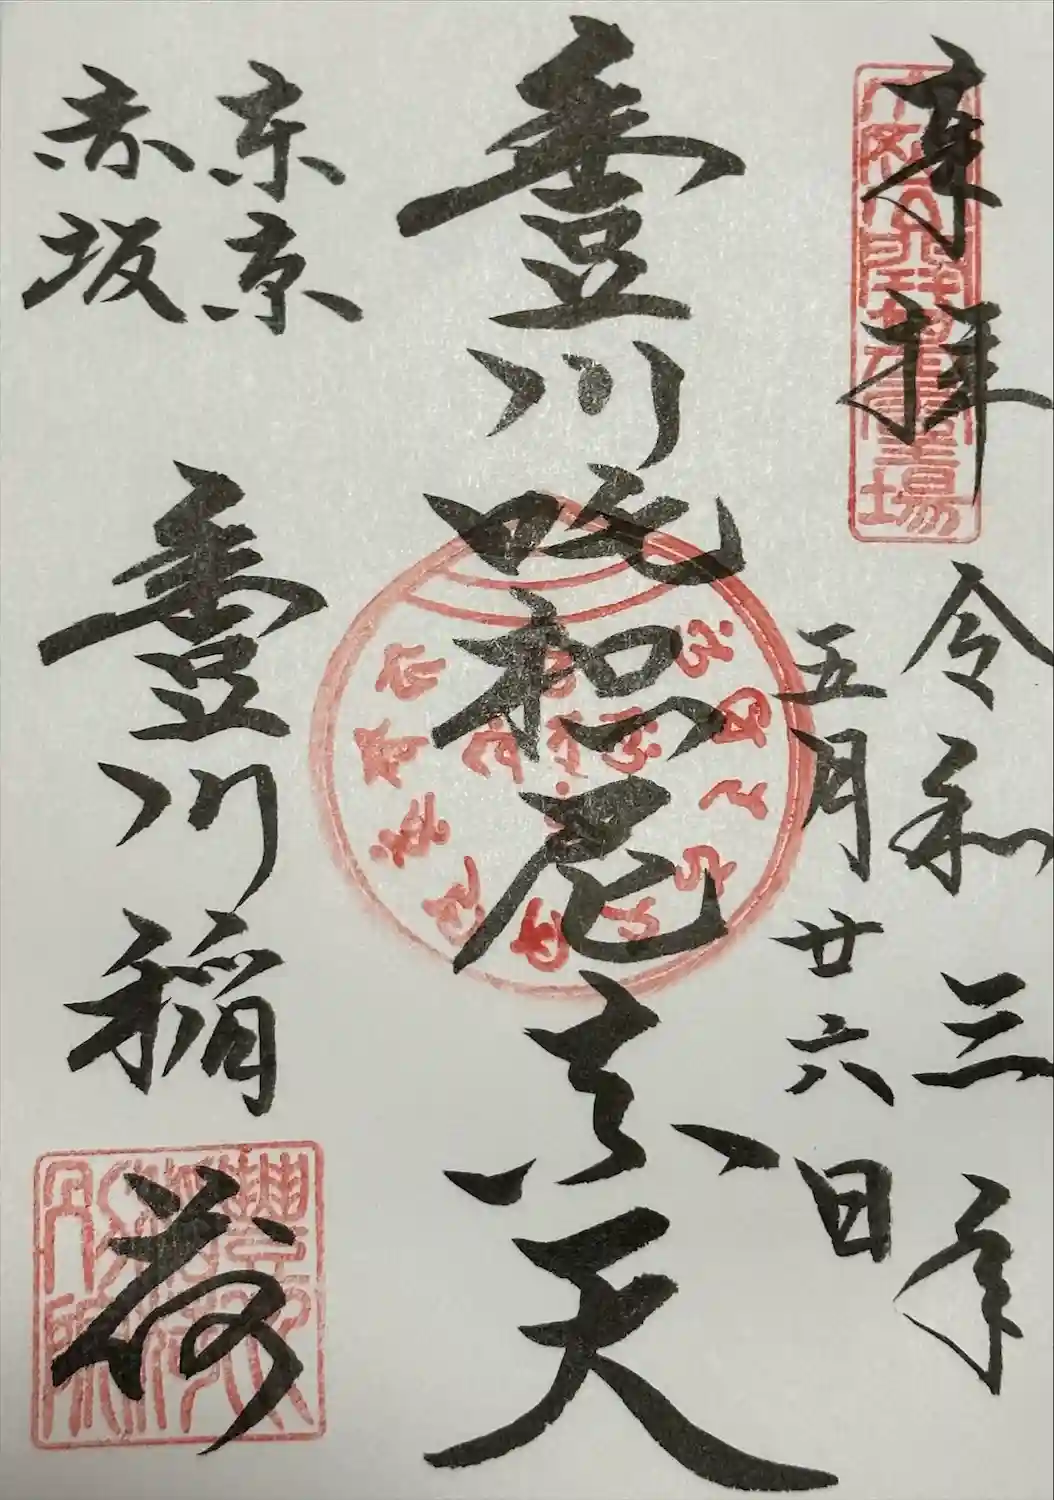 来拝
令和三年
五月廿六日
豊川吒枳尼真天
東京
赤坂
豊川稲荷